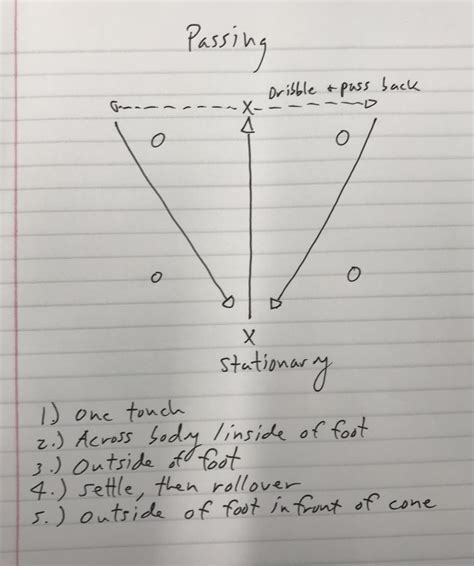 Passing
Dribble + pass back
X
X
Stationary
1.) One touch
2.) Across body / inside of foot
3.) Outside of foot
4.) Settle, then rollover
5.) Outside of foot in front of cone